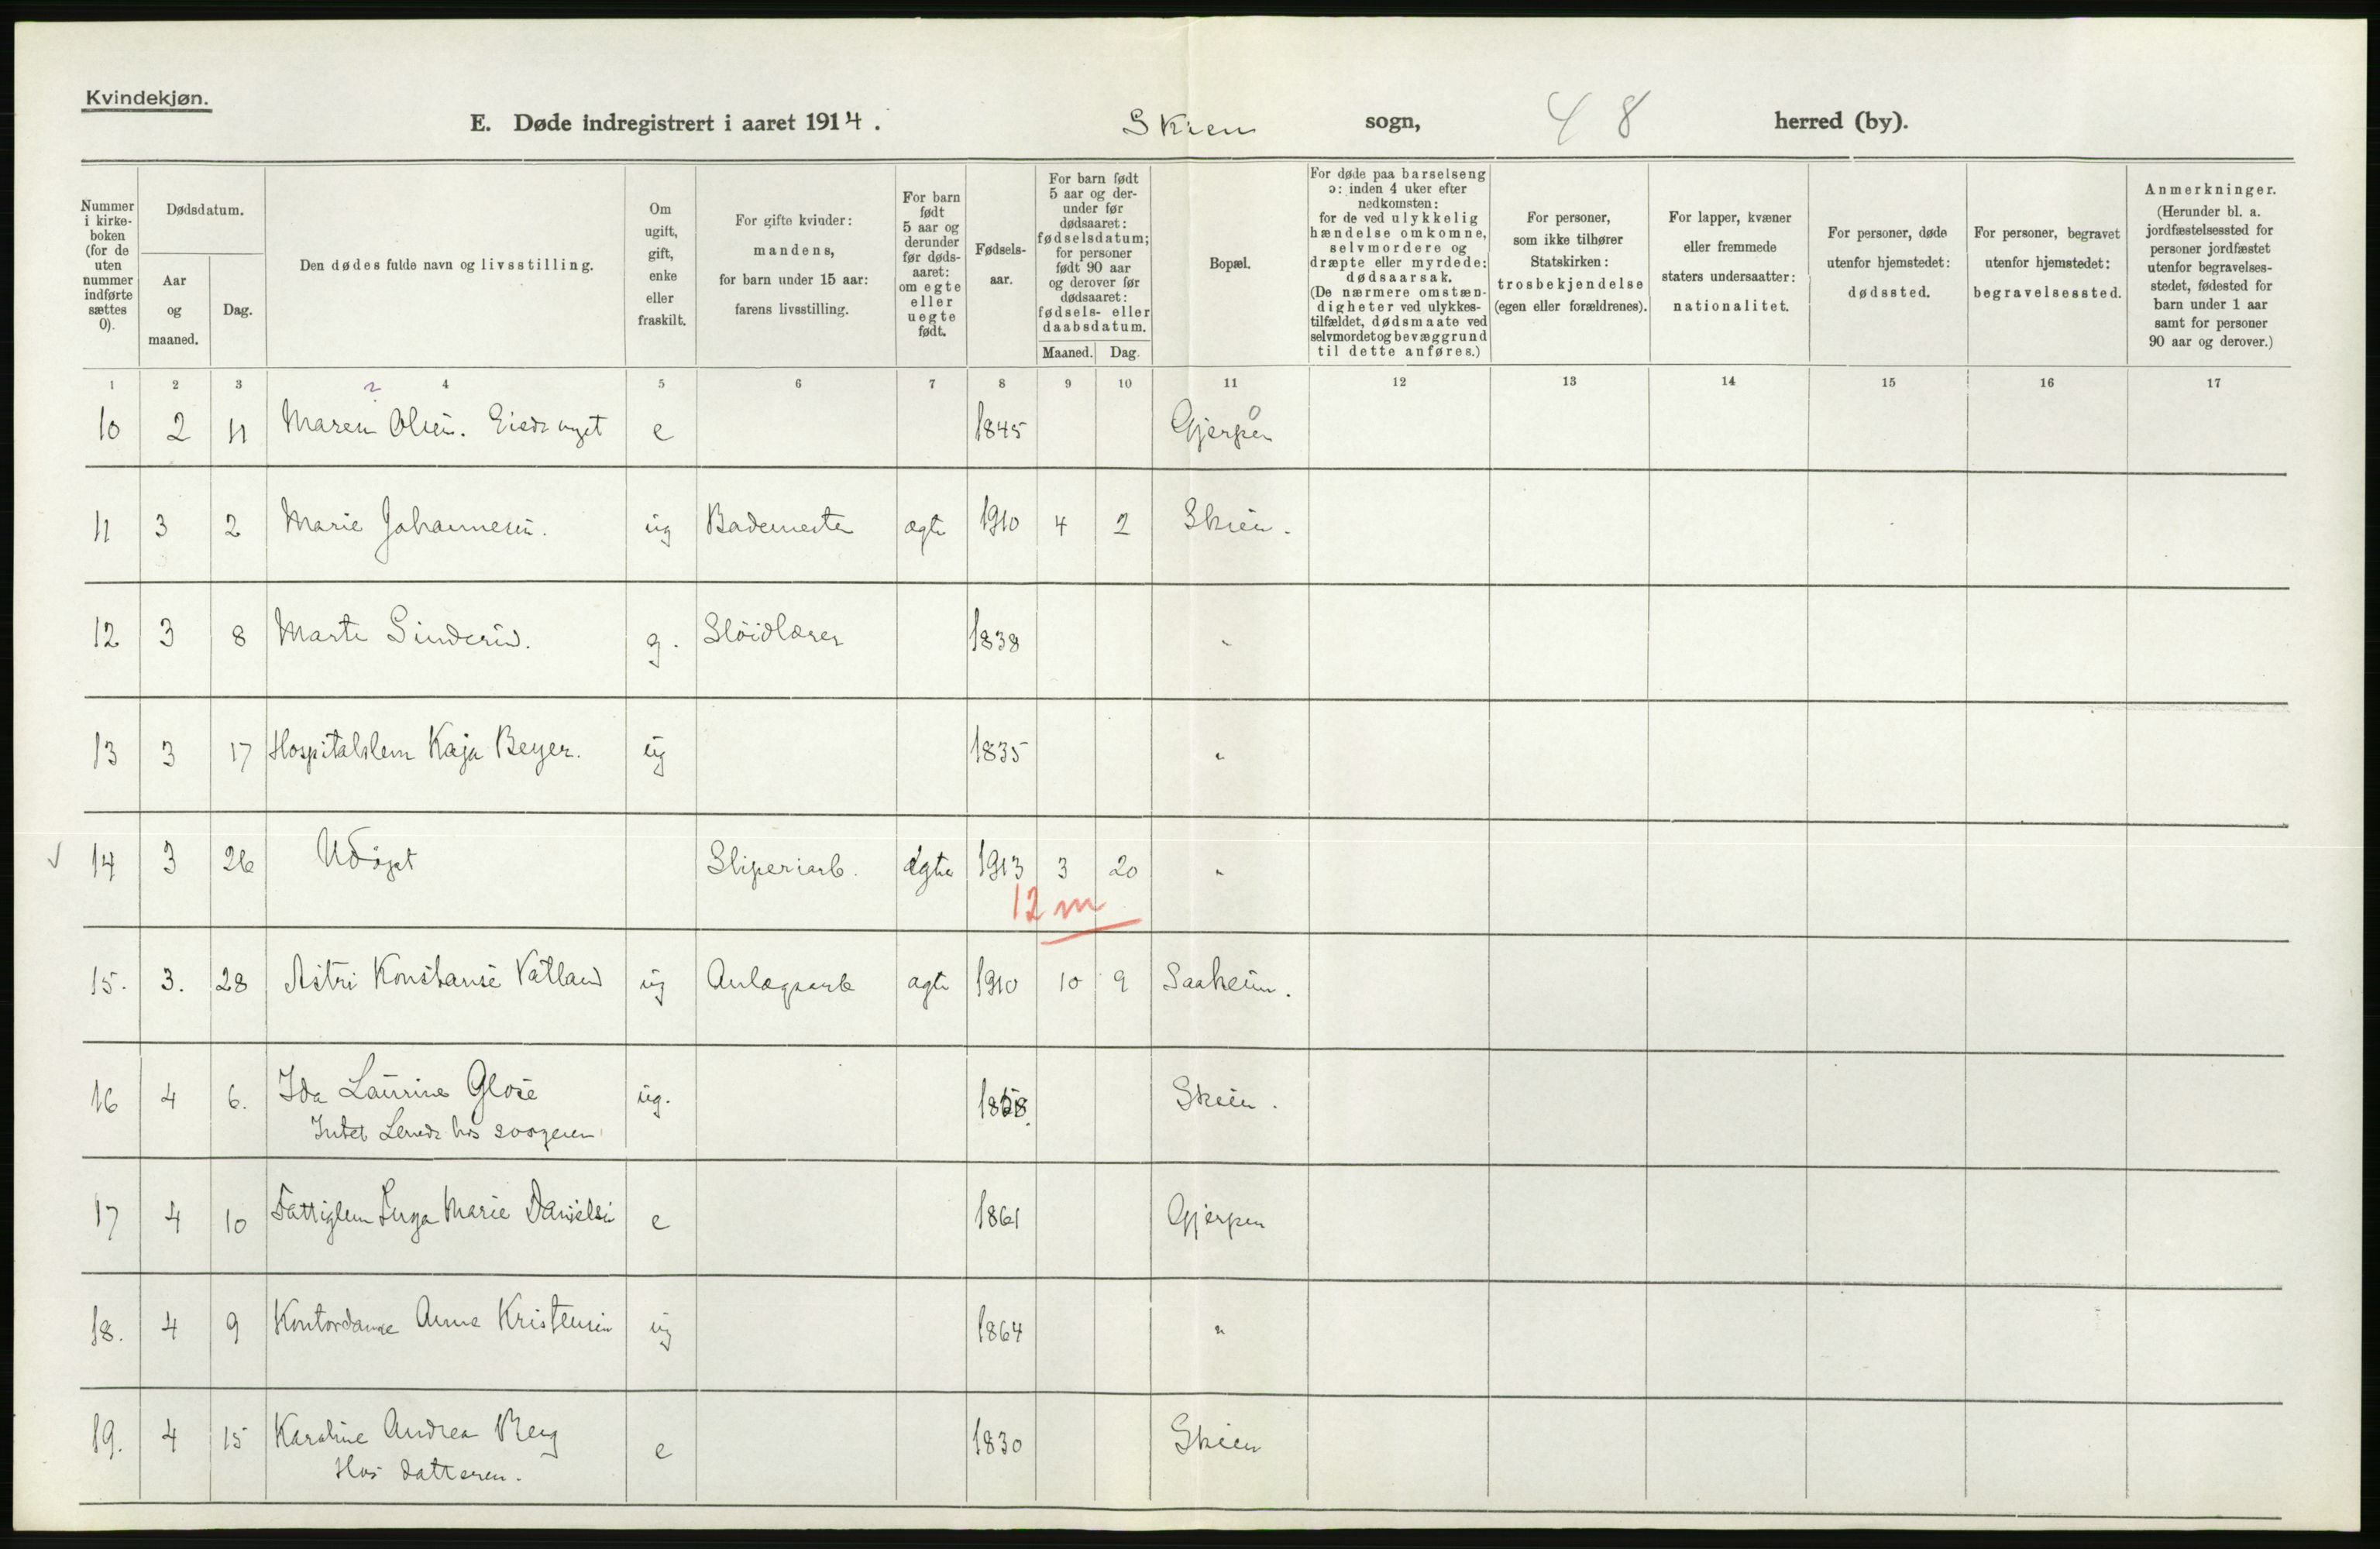 Kvindekjøn.
E. Døde indregistrert i aaret 1914. Skien sogn, 48 herred (by).
Nummer i kirke-boken (for de uten nummer indførte sættes 0).
Dødsdatum.
Aar og maaned.
Dag.
Den dødes fulde navn og livsstilling.
Om ugift, gift, enke eller fraskilt.
For gifte kvinder: mandens, for barn under 15 aar: farens livsstilling.
For barn født 5 aar og derunder før døds-aaret: om egte eller uegte født.
Fødsels-aar.
For barn født 5 aar og der-under før dødsaaret: fødselsdatum; for personer født 90 aar og derover før dødsaaret: fødsels- eller daabsdatum.
Maaned. Dag.
Bopæl.
For døde paa barselseng ɔ: inden 4 uker efter nedkomsten: for de ved ulykkelig hændelse omkomne, selvmordere og dræpte eller myrdede: dødsaarsak. (De nærmere omstæn-digheter ved ulykkes-tilfældet, dødsmaate ved selvmordet og bevæggrund til dette anføres.)
For personer, som ikke tilhører Statskirken: trosbekjendelse (egen eller forældrenes).
For lapper, kvæner eller fremmede staters undersaatter: nationalitet.
For personer, døde utenfor hjemstedet: dødssted.
For personer, begravet utenfor hjemstedet: begravelsessted.
Anmerkninger. (Herunder bl. a. jordfæstelsessted for personer jordfæstet utenfor begravelses-stedet, fødested for barn under 1 aar samt for personer 90 aar og derover.)
1 2 3 4 5 6 7 8 9 10 11 12 13 14 15 16 17
10 2 11 Maren Olsen. e 1845 Gjerpen
11 3 2 Marie Johannesen. ug Bademester ægte 1910 4 2 Skien.
12 3 8 Marte g. Sløidlærer 1838 "
13 3 17 Hospitalslem Kaja Beyer. ug 1835 "
14 3 26 Udøpt Sliperiarb. ægte 1913 3 20 "
12 m
15. 3. 28 Astri Konstanse Vatland ug Anlægsarb ægte 1910 10 9 Saaheim.
16 4 6. Ida Laurine ug. Skien.
Intet
17 4 10 Fattiglem Inga Marie Danielsen e 1861 Gjerpen
18. 4 9 Kontordame Anne Kristensen ug 1864 "
19. 4 15 Karoline Andrea Berg e 1830 Skien
Hos datteren.